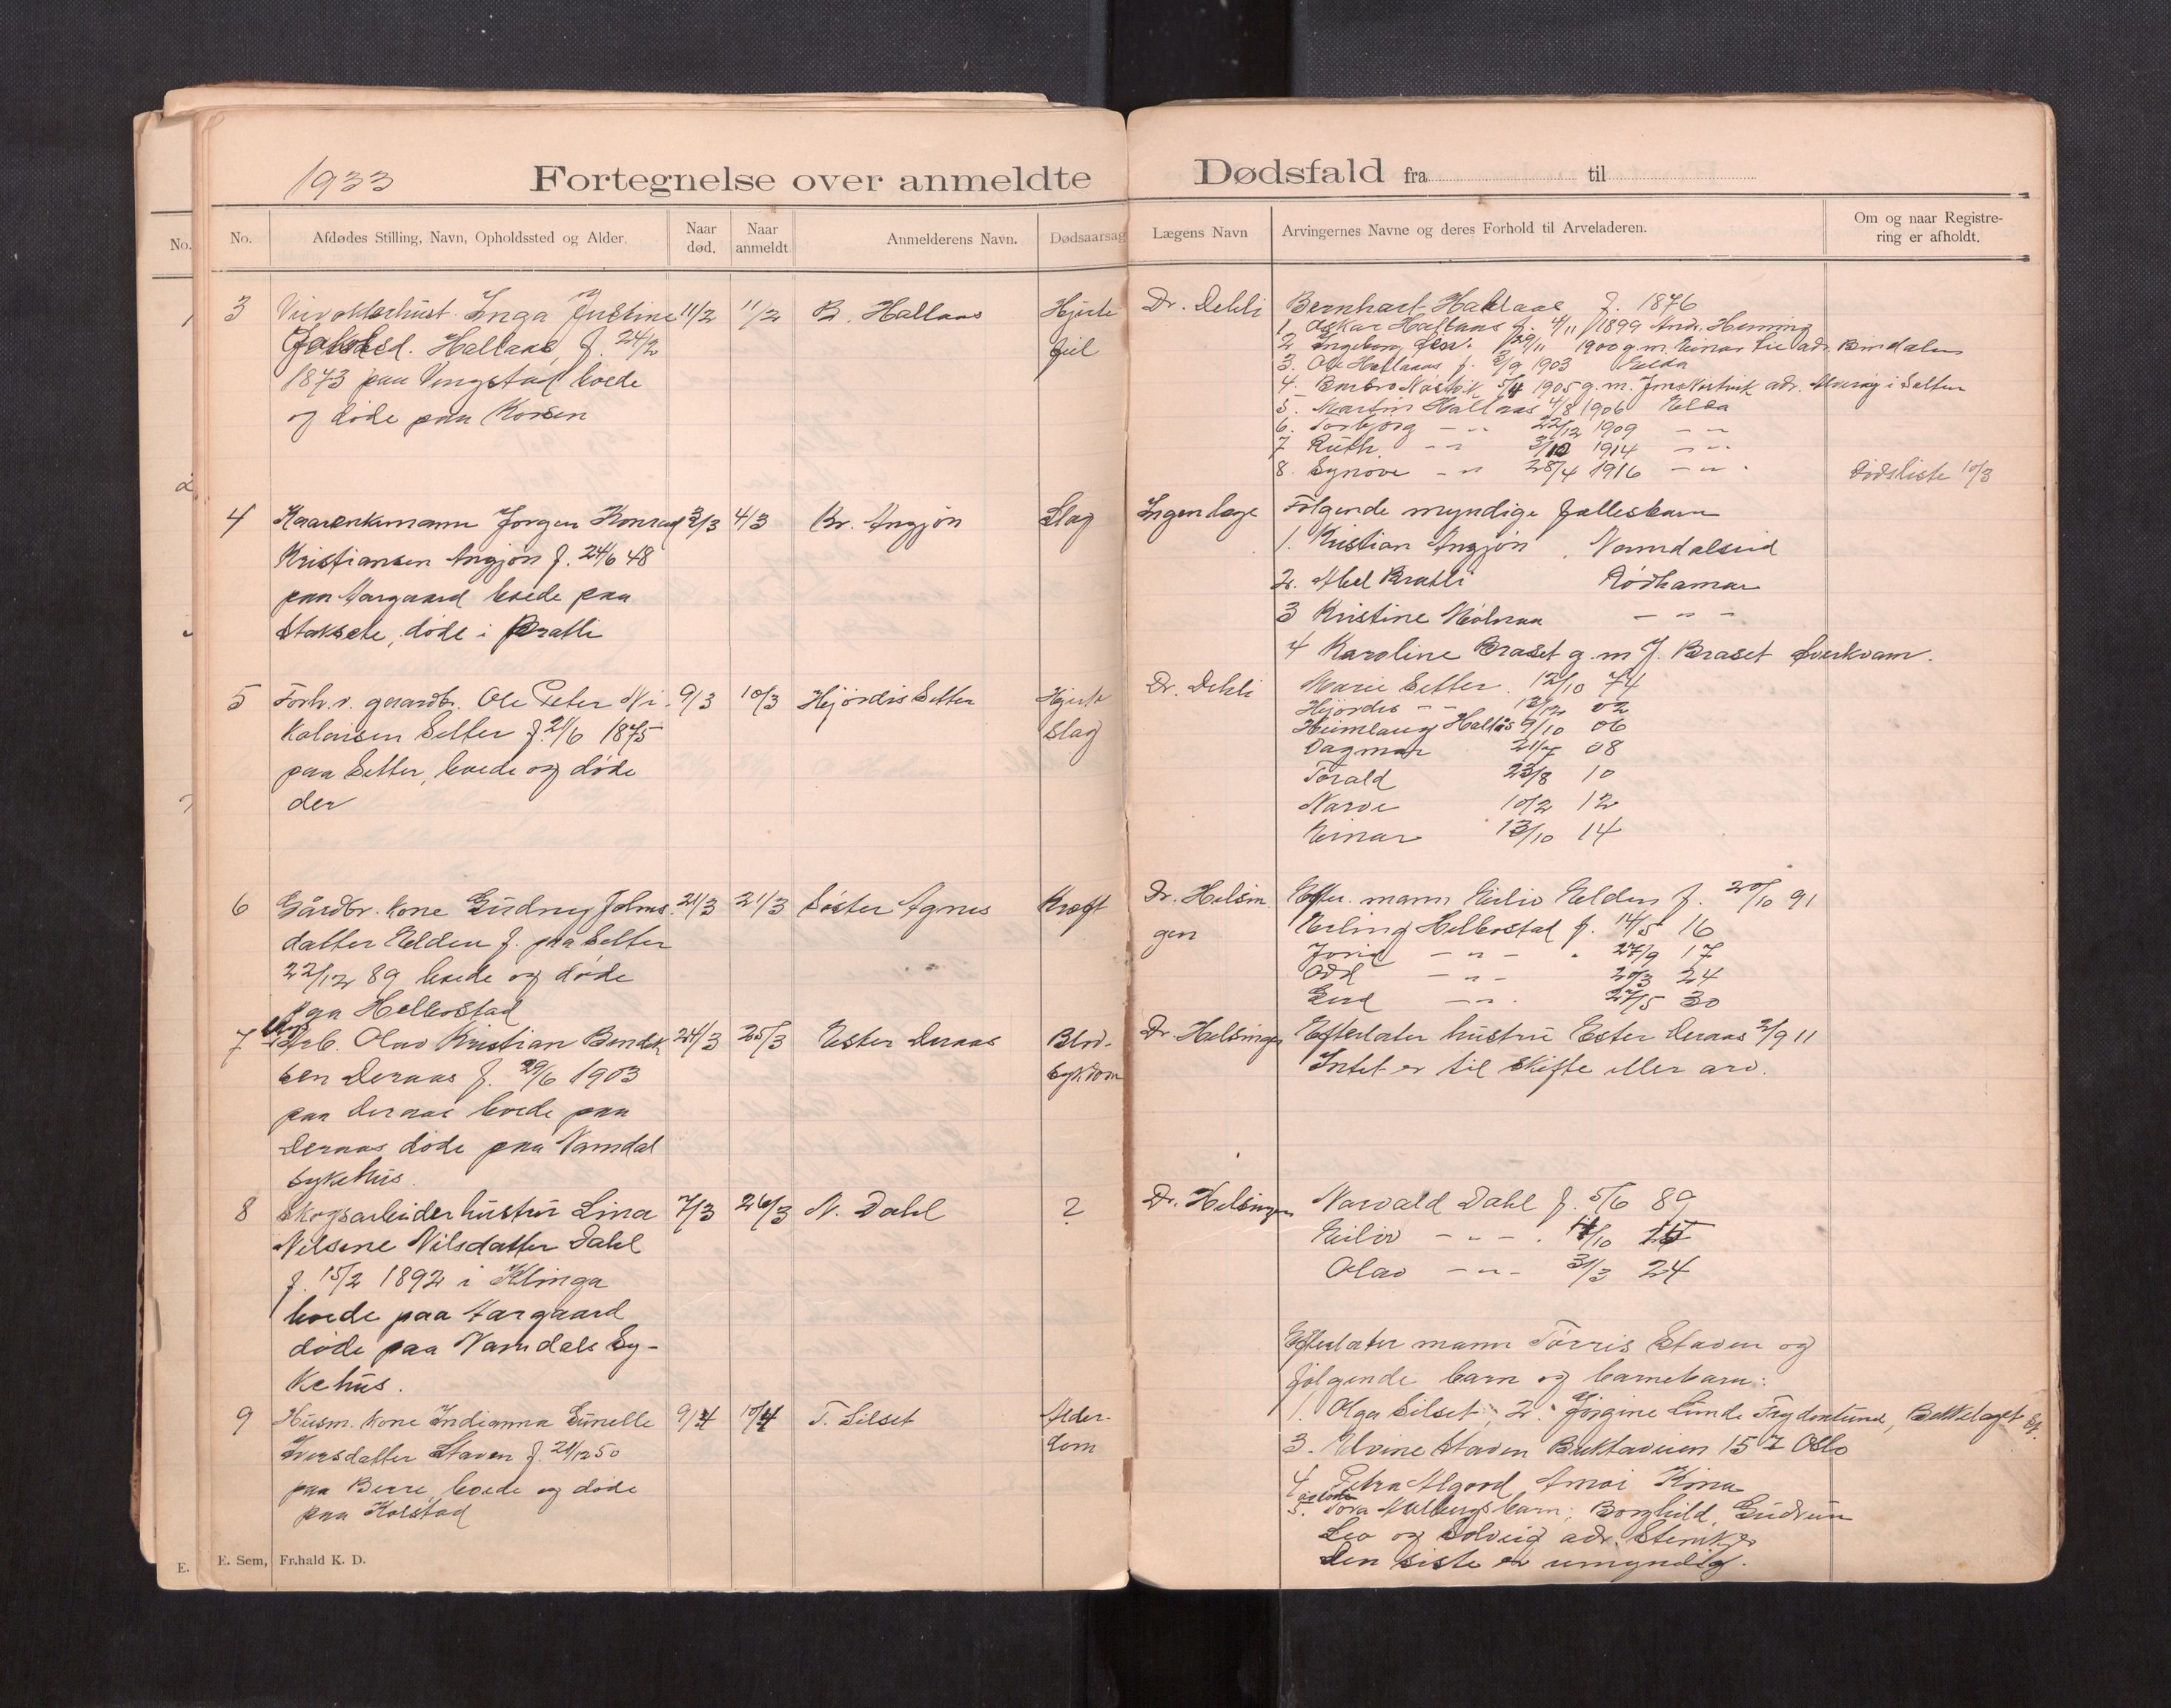 1933 Fortegnelse over anmeldte Dødsfald fra til
No. Afdødes Stilling, Navn, Opholdssted og Alder. Naar død. Naar anmeldt Anmelderens Navn. Dødsaarsag Lægens Navn Arvingernes Navne og deres Forhold til Arveladeren. Om og naar Registrering er afholdt.
3 Inga Justine 11/2 11/2 B. Hallaas Hjerte Dr. Dehli Bernhart Hallaas f. 1876
Hallaas f. 24/2 feil
1873 paa Vengstad boede
og døde paa Korsen
1. Oskar Hallaas f. 4/11 1899 Adr. Henning
2 Ingeborg 29/11 1900 g.m. Einar Lie adr. Bindalen
3. Ole Hallaas f. 3/9 1903 Elda
4. Barbro 5/4 1905 g.m. adr. i Salten
5. Martin Hallaas 4/8 1906 Elda
6. Torbjørg - " - 22/12 1909 - " -
7 Ruth - " - 3/10 1914 - " -
8. Synøve - " - 28/4 1916 - " - Dødsliste 10/3
4 Kaarenkmann Jørgen Konrad 3/3 4/3 Kr. Angjøn Slag Ingen læge Følgende myndige fællesbarn
Kristiansen Angjøn f. 24/6 48
paa Aargaard boede paa
Staksete, døde i Bratli
1. Kristian Angjøn, Namdalseid
2. Abel Bratli Rødhamar
3 Kristine - " -
4 Karoline Braset g. m J. Braset Overkvam.
5 Forh.v. gaardbr. Ole Peter Ni- 9/3 10/3 Hjørdis Setter Hjerte Dr. Dehli Marie Setter. 12/10 74
kolaisen Setter f. 21/6 1875 slag
paa Setter, boede og døde
der
Hjørdis - - 12/12 02
Heimlaug Hallås 9/10 06
Dagmar 21/7 08
Torald 23/8 10
Narve 10/2 12
Einar 13/10 14
6 Gårdbr. kone Gudny Johns- 21/3 21/3 Søster Agnes Kræft Dr. Helsingen Efter. mann Eiliv Elden f. 20/10 91
datter Elden f. paa Setter
22/12 89 boede og døde
paa Helbostad
Erling Helbostad f. 14/5 16
Jorid - " - 27/9 17
Odd - " - 20/3 24
Gud - " - 27/5 30
7 Arb. Olav Kristian Bendik- 24/3 25/3 Ester Deraas Blod- Dr. Helsingen Efterlater hustru Ester Deraas 2/9 11
sen Deraas f. 29/6 1903 sykdom Intet er til skifte eller arv.
paa Deraas boede paa
Deraas døde paa Namdal
sykehus.
8 Skogsarbeiderhustru Lina 7/3 26/3 N. Dahl ? Dr. Helsingen Narvald Dahl f. 5/6 89
Nilsine Nilsdatter Dahl
f. 15/2 1892 i Klinga
boede paa Aargaard
døde paa Namdals Sy-
kehus.
Eiliv - " - 4/10 15
Olav - " - 31/3 24
Efterlater mann Tørris Staven og
følgende barn og barnebarn:
9 Husm. kone Indianna Gunelle 9/4 10/4 T. Silset Alder-
Iversdatter Staven f. 21/12 50 dom
paa Berre, boede og døde
paa Kolstad
1. Olga Silset, 2. Jørgine Lunde Frydenlund, Bekkelaget
3. Elvine Staven Buktaveien 15 I Oslo
4. Petra Algord Amoi Kina
5. Tora barn; Borghild, Gudrun
Leo og Solveig adr. Stenkjer
Den siste er umyndig.
E. Sem, Fr.hald K. D.